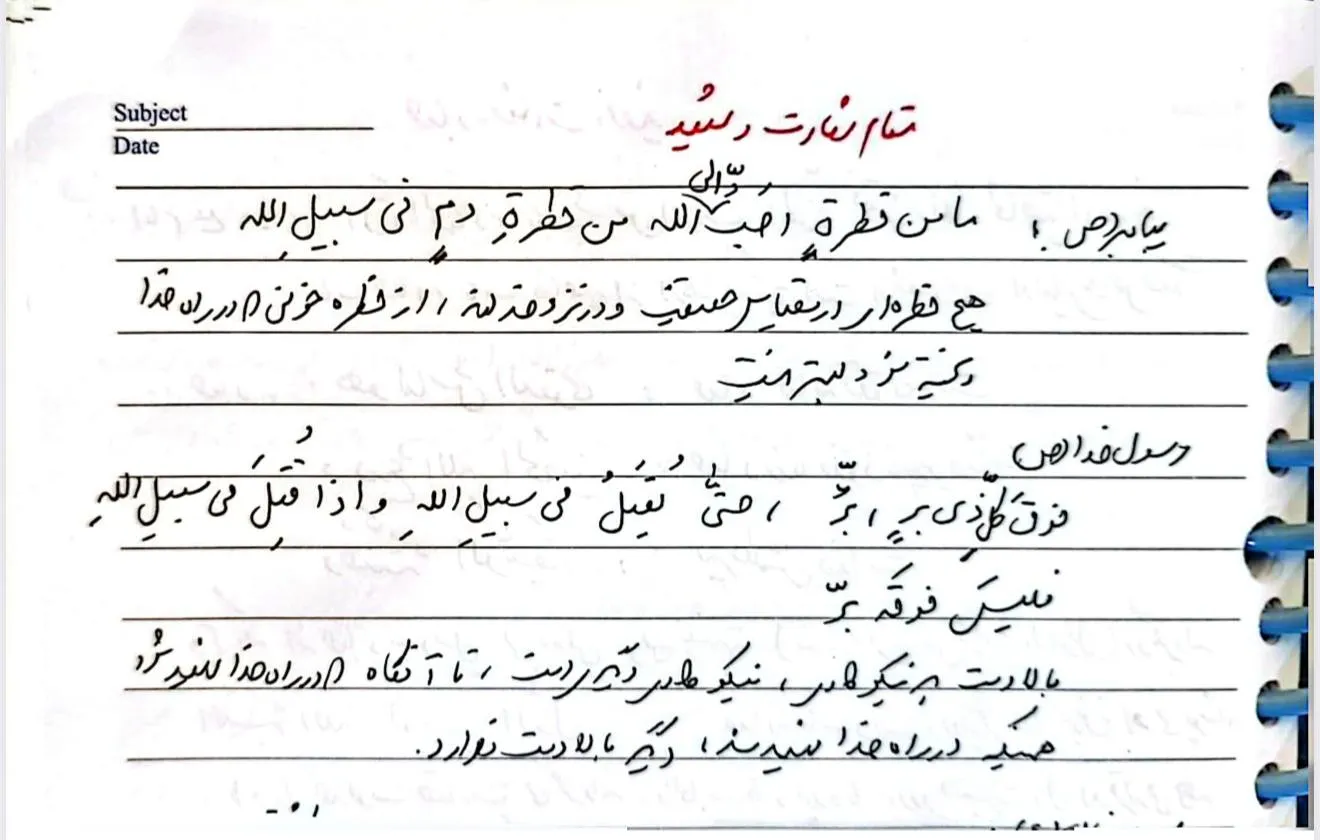 Subject
Date
مقام شهادت و شهید
پیامبر(ص): ما من قطرةٍ اَحَبَّ الی الله من قطرةِ دمٍ فی سبیلِ اللِه
هیچ قطره‌ای در مقیاس حقیقت و در نزد خدا، از قطره خونی که در راه خدا
ریخته شود بهتر نیست
رسول خدا(ص)
فوقَ کلِّ ذی برٍ، بّرٌ، حتّیٰ یُقتَلُ فی سبیلِ اللِه و اذا قُتِلَ فی سبیلِ اللهِ
فلیسَ فوقَه برّ
بالادست هر نیکوکاری، نیکوکار دیگری است، تا آنگاه که در راه خدا شهید شود
همینکه در راه خدا شهید شد، دیگر بالادست ندارد.